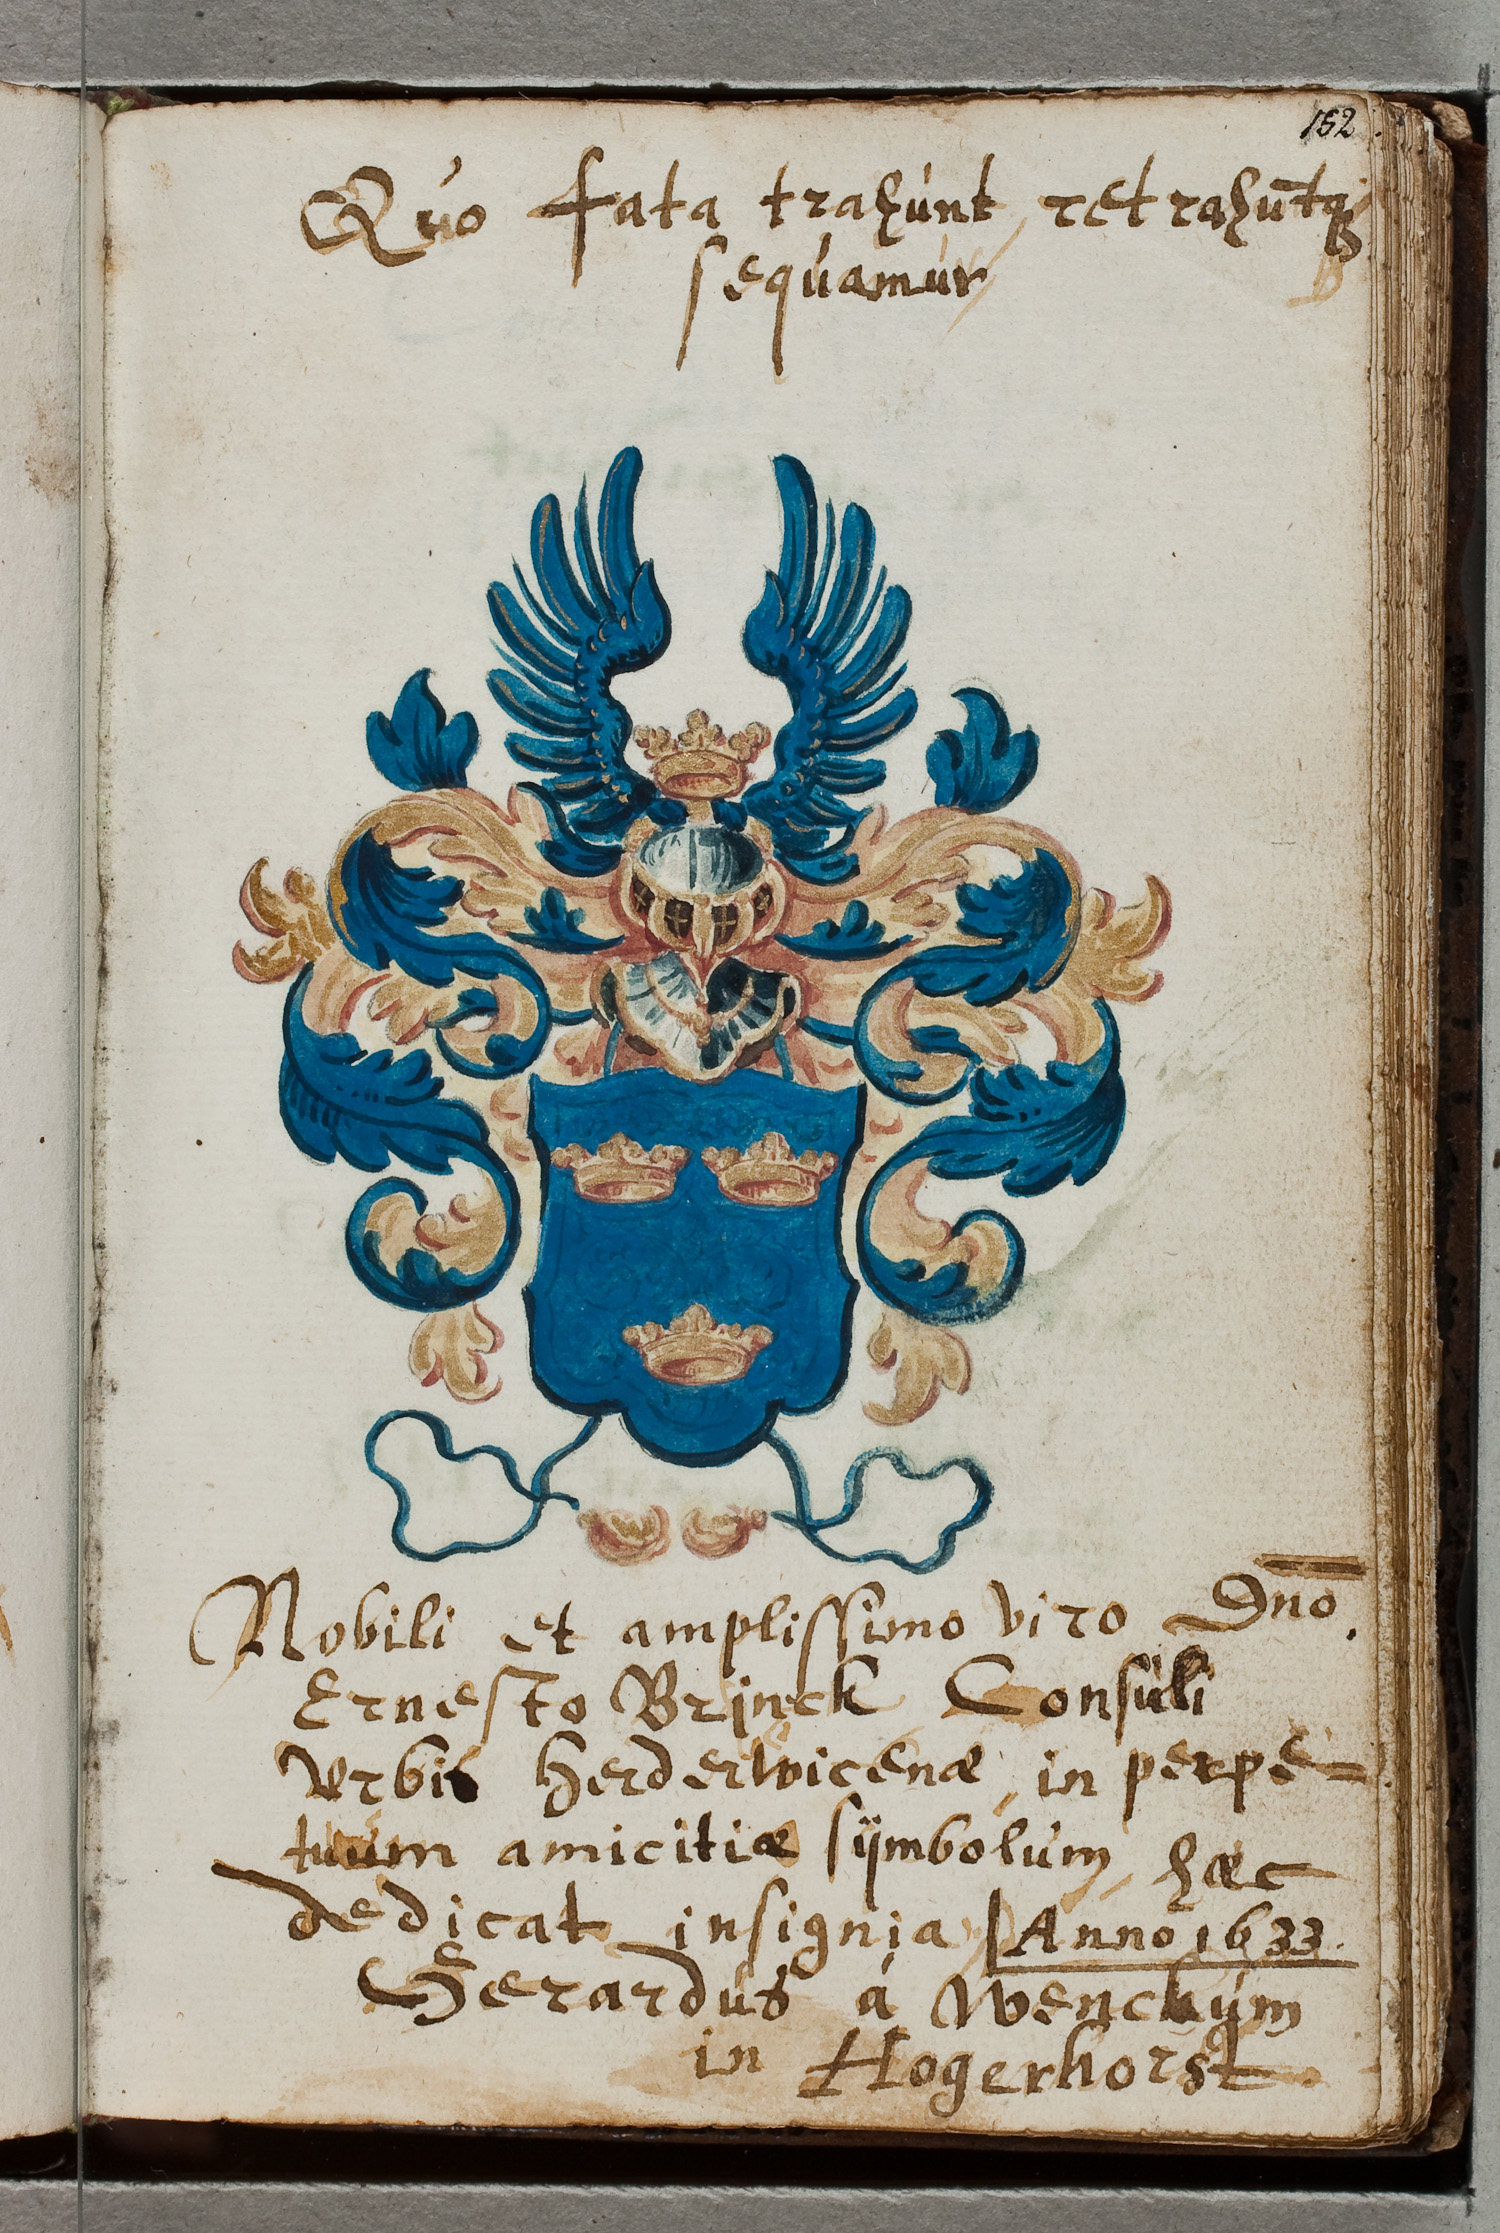 152
Quo fata trahunt, retrahuntq;
sequamur
Nobili et amplissimo viro Dno.
Ernesto Brinck Consuli
Urbis Herderwicenæ, in perpe=
tuum amicitiæ sÿmbolum, hæc
dedicat insignia Anno 1633.
Gerardus á Wenckum
in Hogerhorst